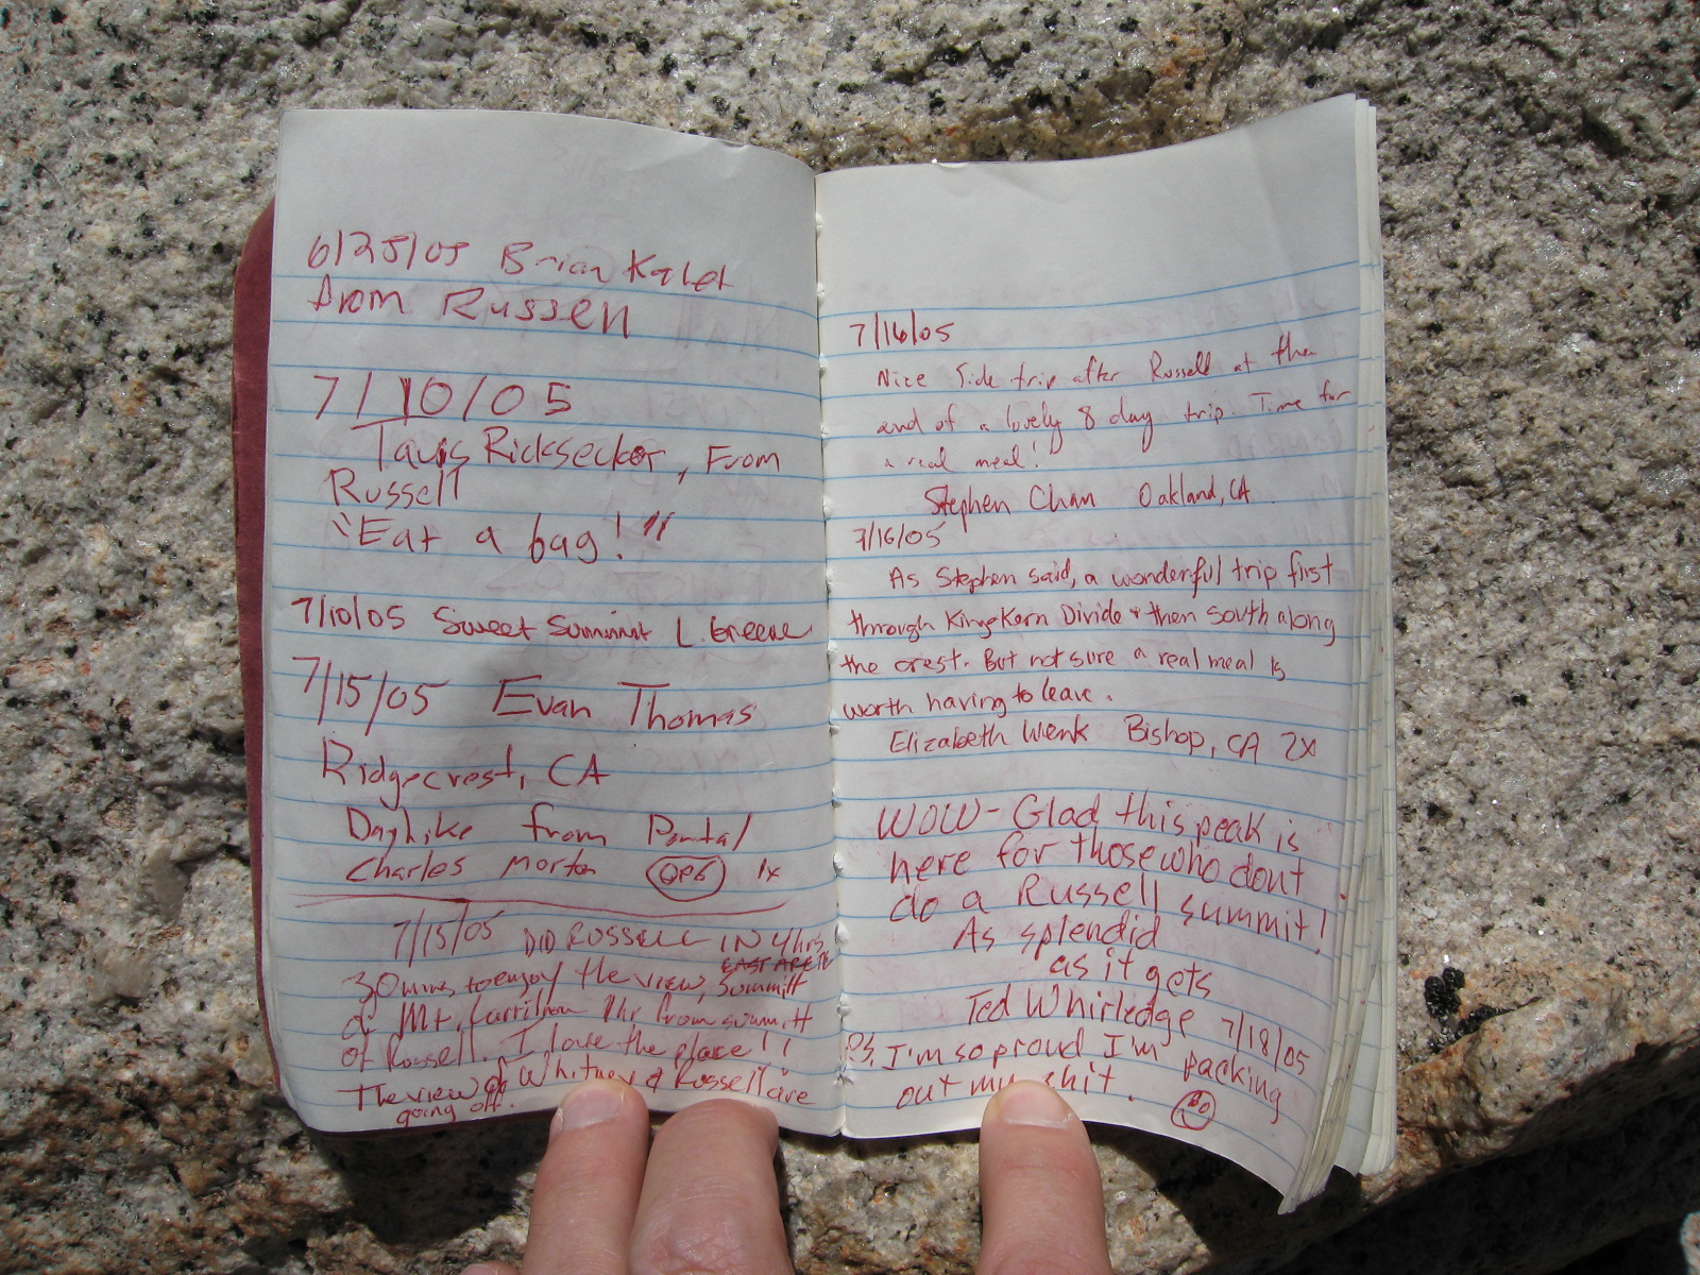 6/25/05 Brian
from Russell
7/10/05
Tavis Ricksecker, From
Russell
"Eat a bag!"
7/10/05 Sweet Summit L. Greene
7/15/05 Evan Thomas
Ridgecrest, CA
Dayhike from Portal
Charles Morton 1x
7/15/05 DID RUSSELL IN 4 hrs
EAST ARETE
30 mins to enjoy the view, Summitt
of Mt. Carrillon 1hr from summitt
of Russell. I love the place!!
The view of Whitney & Russell are
going off.
7/16/05
Nice side trip after Russell at the
end of a lovely 8 day trip. Time for
a real meal!
Stephen Chan Oakland, CA
7/16/05
As Stephen said, a wonderful trip first
through Kings Kern Divide & then south along
the crest. But not sure a real meal is
worth having to leave.
Elizabeth Wenk Bishop, CA 2x
WOW - Glad this peak is
here for those who dont
do a Russell summit!
As splendid
as it gets
Ted Whirledge 7/18/05
PS, I'm so proud I'm packing
out my shit.